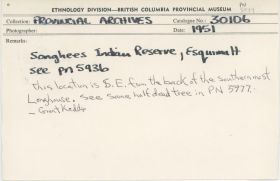 PN
ETHNOLOGY DIVISION—BRITISH COLUMBIA PROVINCIAL MUSEUM
Collection: PROVINCIAL ARCHIVES Catalogue No.: 30106
Photographer: Date: 1951
Remarks:
Songhees Indian Reserve, Esquimalt
see PN 5936
This location is S.E. from the back of the southernmost
Longhouse. See same half dead tree in PN 5977.
- Grant Keddie